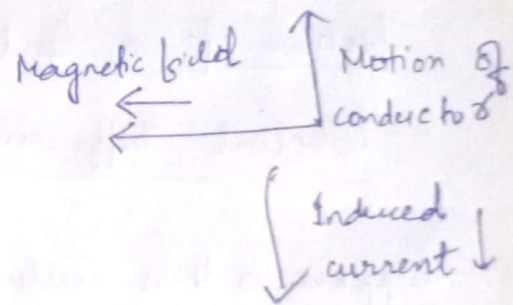 Magnetic field
Motion of
conductor
Induced
current